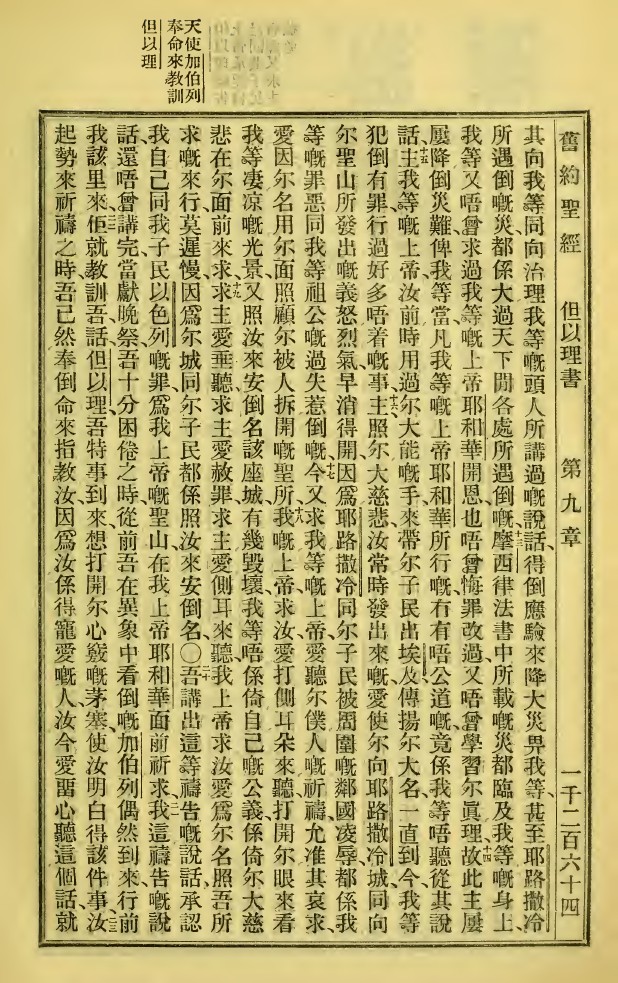 舊約聖經 但以理書 第九章 一千二百六十四
其向我等同向治理我等嘅頭人所講過嘅說話十二得倒應驗來降大災畀我等甚至耶路撒冷
所遇倒嘅災都係大過天下閒各處所遇倒嘅十三摩西律法書中所載嘅災都臨及我等嘅身上
我等又唔曾求過我等嘅上帝耶和華開恩也唔曾悔罪改過又唔曾學習尔眞理十四故此主屢
屢降倒災難俾我等當凡我等嘅上帝耶和華所行嘅冇有唔公道嘅竟係我等唔聽從其說
話十五主我等嘅上帝汝前時用過尔大能嘅手來帶尔子民出埃及傳揚尔大名一直到今我等
犯倒有罪行過好多唔着嘅事十六主照尔大慈悲汝常時發出來嘅愛使尔向耶路撒冷城同向
尔聖山所發出嘅義怒烈氣早消得開因爲耶路撒冷同尔子民被周圍嘅鄰國凌辱都係我
等嘅罪惡同我等祖公嘅過失惹倒嘅十七今又求我等嘅上帝愛聽尔僕人嘅祈禱允准其哀求
愛因尔名用尔面照顧尔被人拆開嘅聖所十八我嘅上帝求汝愛打側耳朵來聽打開尔眼來看
我等凄凉嘅光景又照汝來安倒名該座城有幾毀壞我等唔係倚自己嘅公義係倚尔大慈
悲在尔面前來求十九求主愛垂聽求主愛赦罪求主愛側耳來聽我上帝求汝愛爲尔名照吾所
求嘅來行莫遲慢因爲尔城同尔子民都係照汝來安倒名〇二十吾講出這等禱告嘅說話承認
我自己同我子民以色列嘅罪爲我上帝嘅聖山在我上帝耶和華面前祈求二一我這禱告嘅說
話還唔曾講完當獻晚祭吾十分困倦之時從前吾在異象中看倒嘅加伯列偶然到來行前
我該里來佢就教訓吾話但以理吾特事到來想打開尔心竅嘅茅塞使汝明白得該件事二三汝
起勢來祈禱之時吾已然奉倒命來指教汝因爲汝係得寵愛嘅人汝今愛畱心聽這個話就
天使加伯列
奉命來教訓
但以理